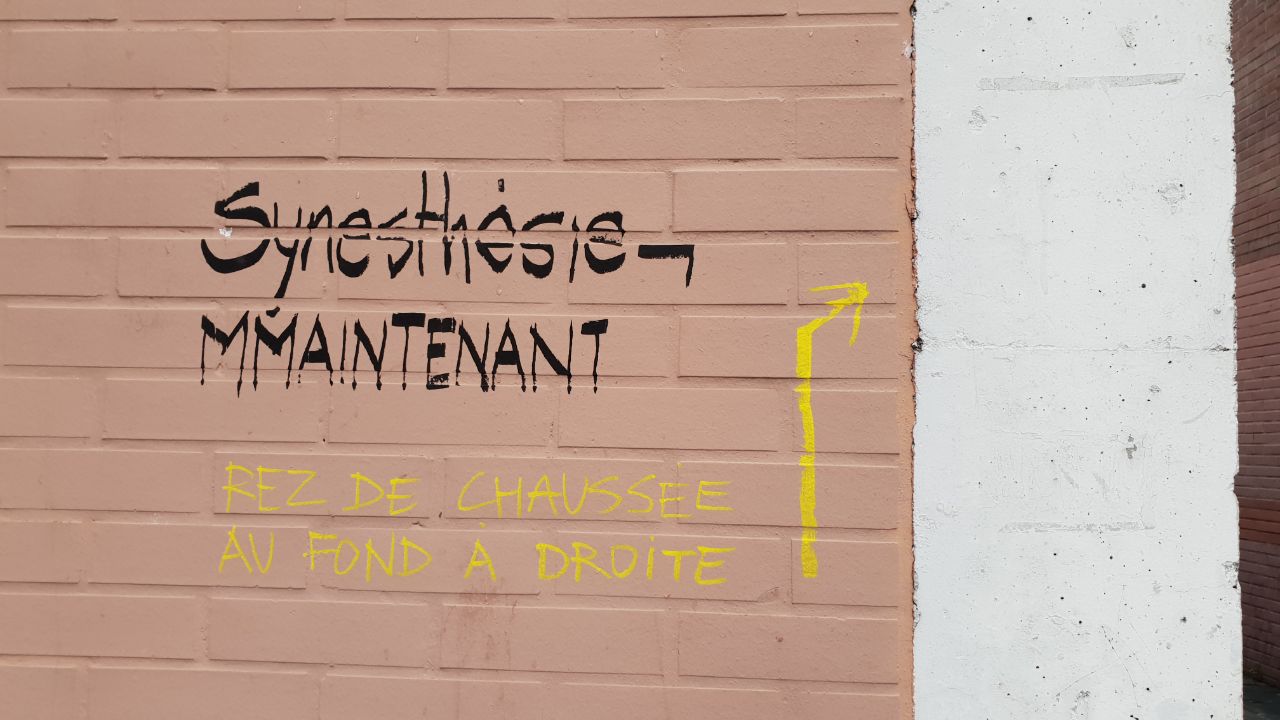 Synesthésie ¬
MMAINTENANT
REZ DE CHAUSSÉE
AU FOND À DROITE